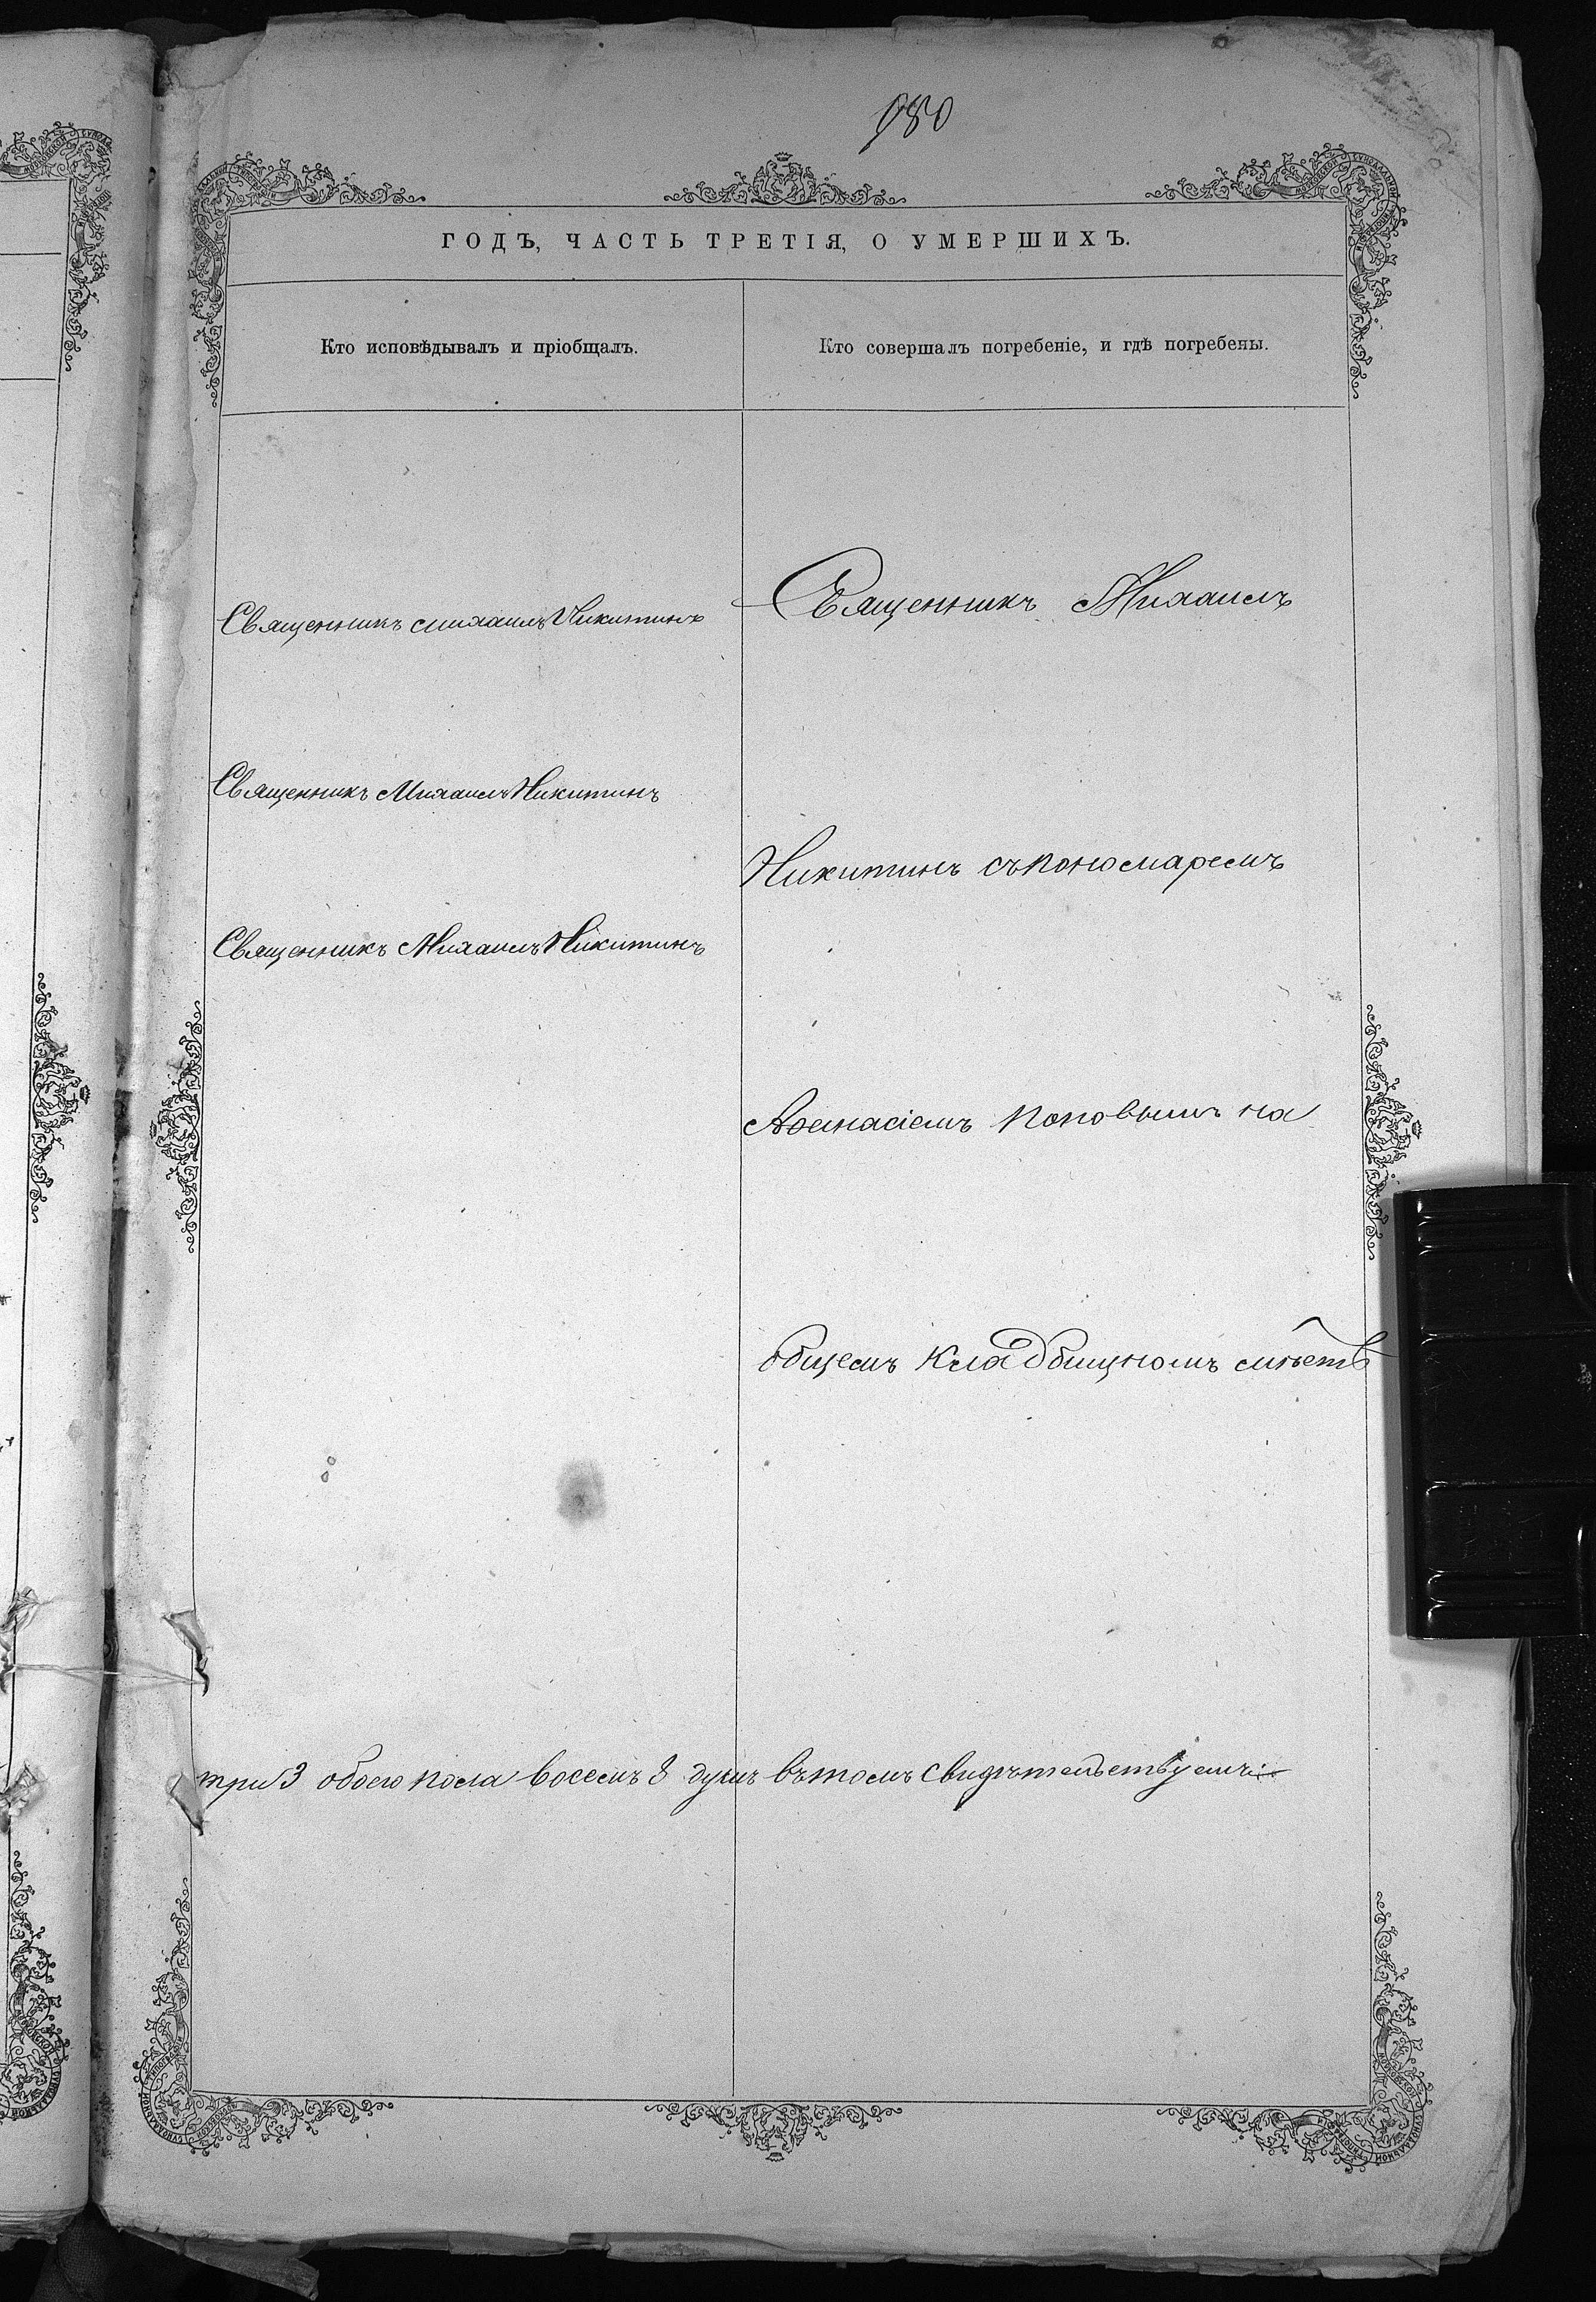 980
ГОДЪ, ЧАСТЬ ТРЕТІЯ, О УМЕРШИХЪ.
Кто исповѣдывалъ и пріобщалъ.
Кто совершалъ погребеніе, и гдѣ погребены.
Священникъ Михаилъ Никитинъ
Священникъ Михаилъ Никитинъ
Священникъ Михаилъ Никитинъ
Священникъ Михаилъ
Никитинъ съ пономаремъ
Аѳанасіемъ Поповымъ на
общемъ кладбищномъ мѣстѣ
три 3 обоего пола восемъ 8 душъ въ томъ свидѣтельствуемъ: